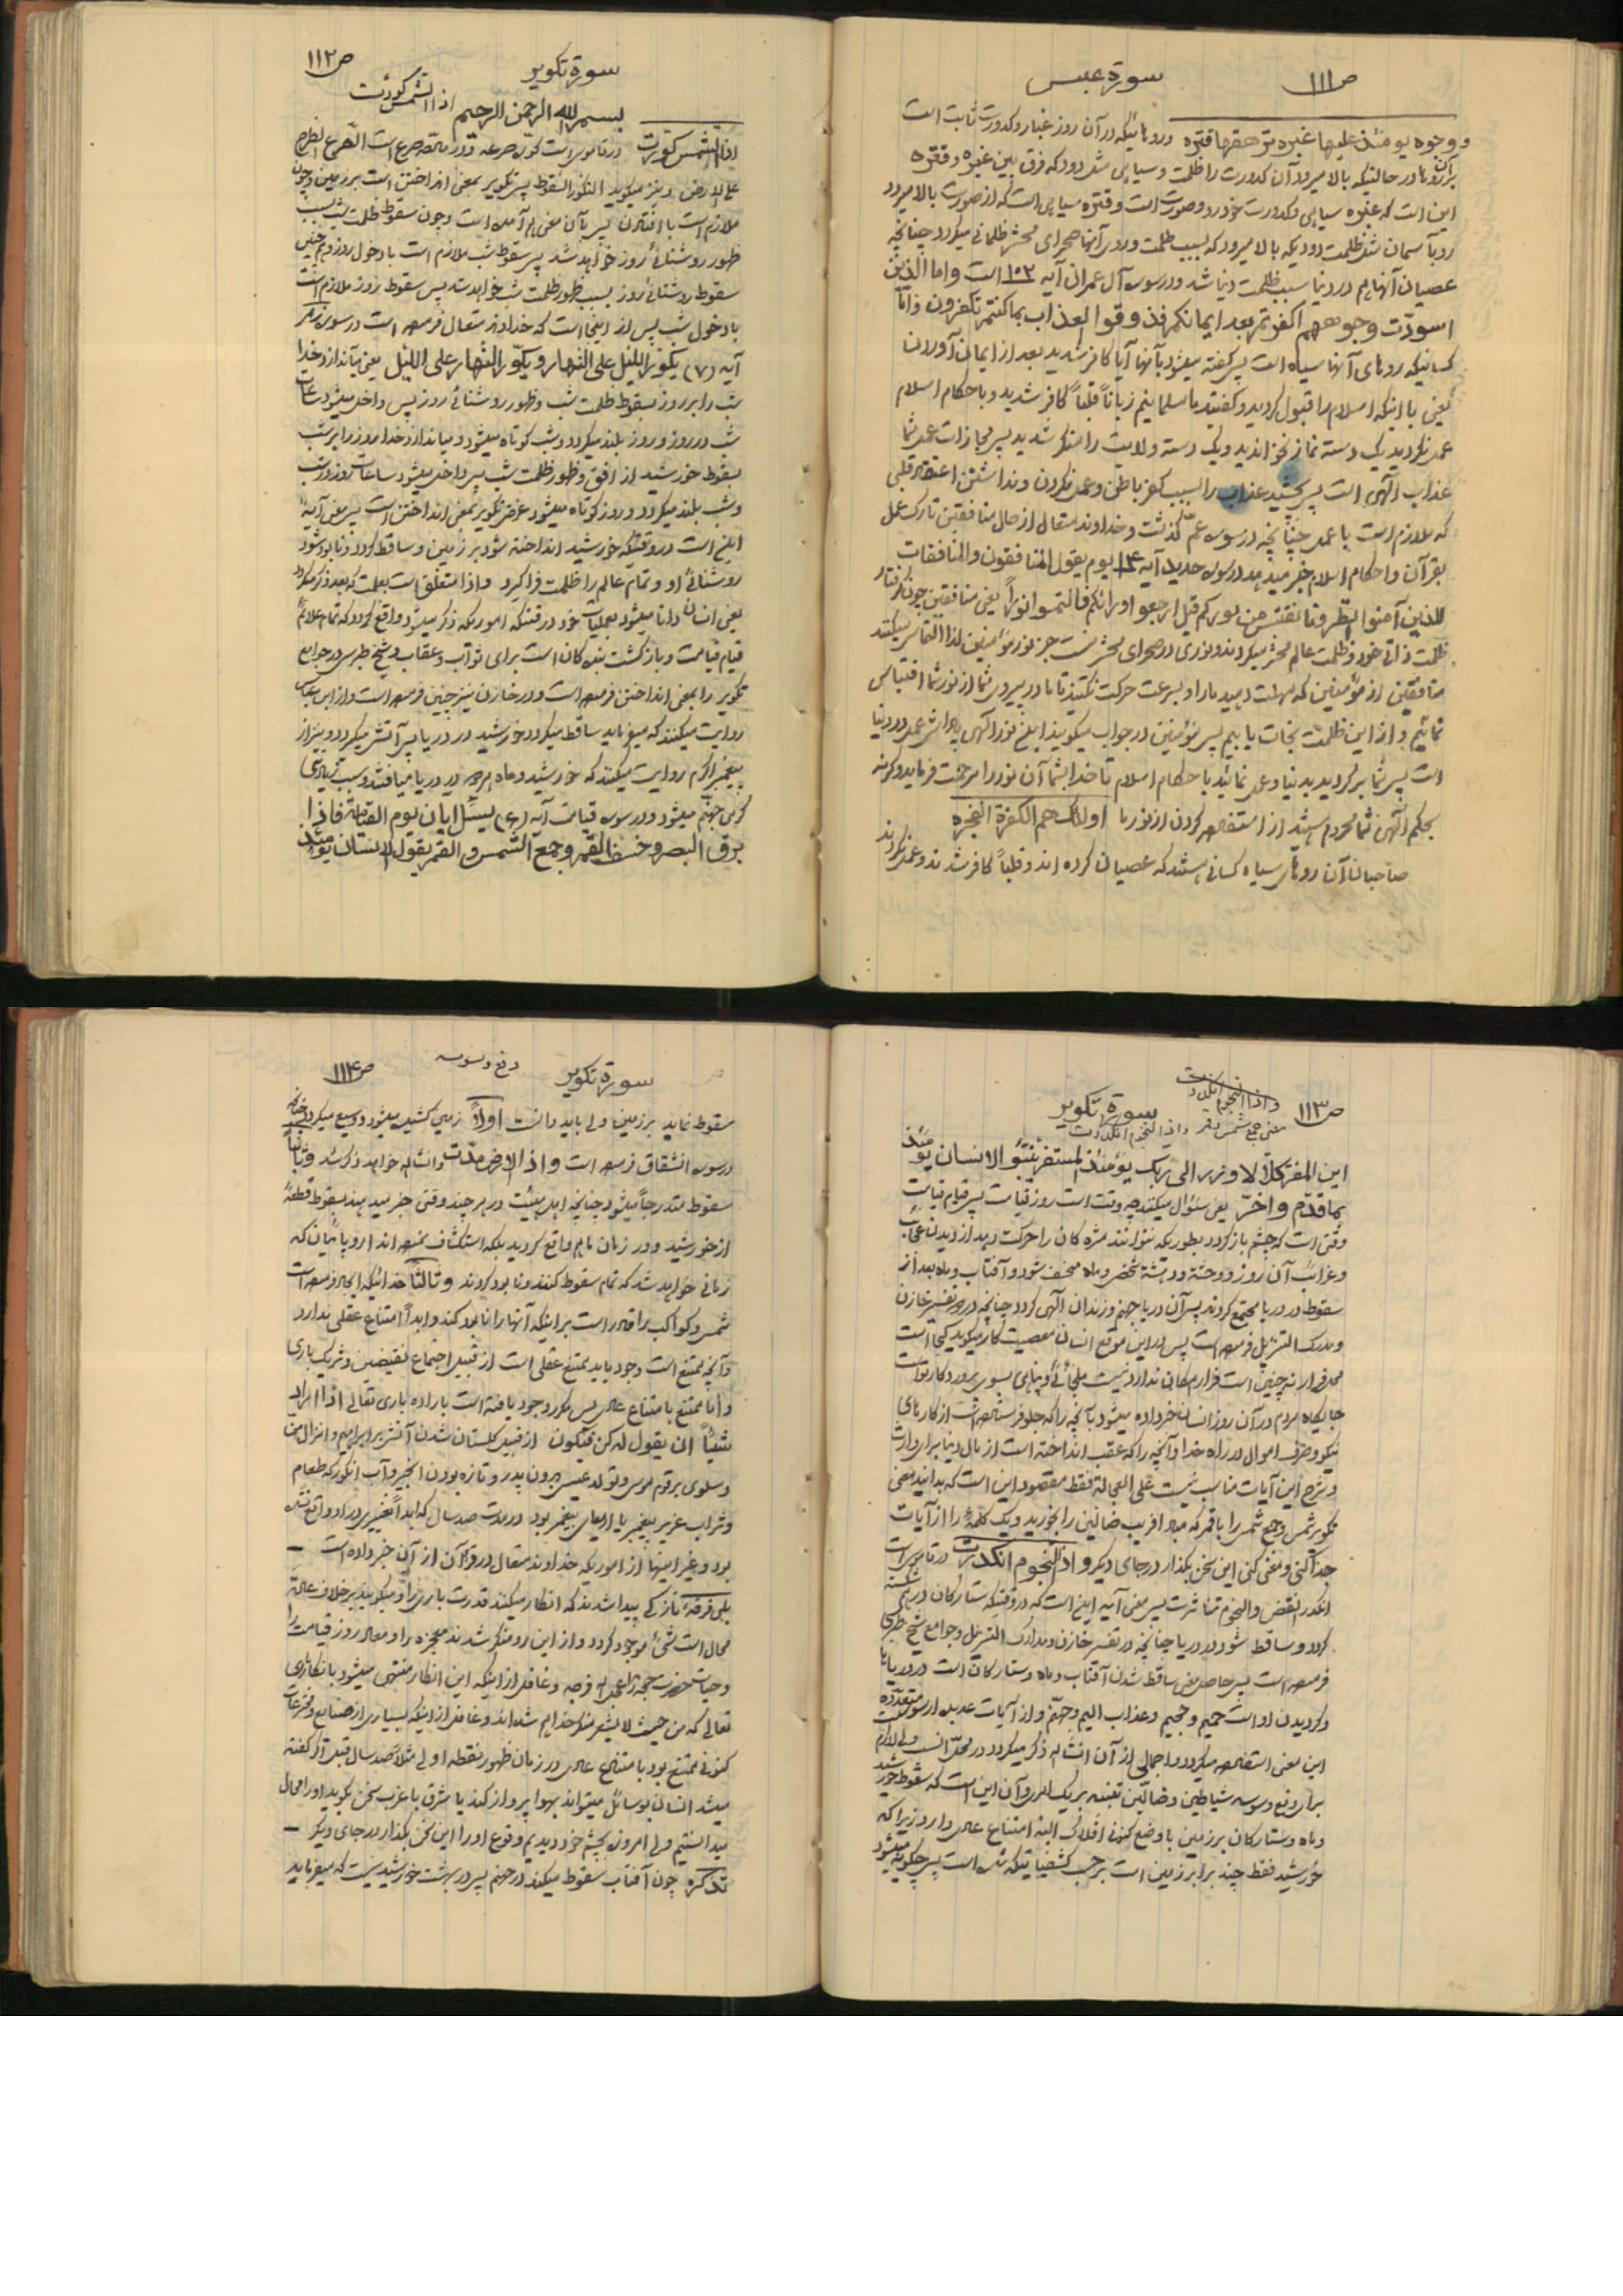 ص۱۱۱ سورة عبس
ووجوه یومئذ علیها غبره ترهقها قتره ورودهائیکه در آن روز غبار و کدورت ثابت است
برآن روها در حالتیکه بالا میرود آن کدورت را ظلمت و سیاهی مثل دود که فرق بین غبره و قتره
این است که غبره سیاهی و کدورت خود رو و صورت است و قتره سیاهی است که از صورت بالا میرود
رو بآسمان مثل ظلمت دودیکه بالا میرود که بسبب ظلمت و دود آنها صحرای محشر ظلمانی میگردد چنانچه
عصیان آنها هم در دنیا سبب ظلمت دنیا شد و در سوره آل عمران آیه ۱۰۲ است واما الذین
اسودّت وجوههم اکفرتم بعد ایمانکم فذوقوا العذاب بما کنتم تکفرون و امّا
کسانیکه روهای آنها سیاه است پس گفته میشود بآنها آیا کافر شدید بعد از ایمان آوردن
یعنی با اینکه اسلام را قبول کردید و گفتید ما مسلمانیم زباناً قلباً کافر شدید و باحکام اسلام
عمل نکردید یک دسته نماز نخواندید ویک دسته ولایت را منکر شدید پس مجازات عمل شما
عذاب الٓهی است پس بچشید عذاب را بسبب کفر باطنی و عمل نکردن و نداشتن اعتقاد قلبی
که ملازم است با عمل چنانچه در سوره عمّ گذشت و خداوند متعال از حال منافقین تارک عمل
بقرآن و احکام اسلام خبر میدهد در سوره حدید آیه ۱۴ یوم یقول المنافقون والمنافقات
للذین آمنوا انظرونا نقتبس من نورکم قیل ارجعوا ورائکم فالتمسوا نوراً یعنی منافقین چون گرفتار
ظلمت ذاتی خود و ظلمت عالم محشر میگردند و نوری در صحرای محشر نیست جز نور مؤمنین لذا التماس میکنند
منافقین از مؤمنین که مهلت دهید ما را و بسرعت حرکت نکنید تا ما در پیروی شما از نور شما اقتباس
نمائیم و از این ظلمت نجات یابیم پس مؤمنین در جواب میگویند این نور الٓهی پاداش عمل در دنیا
است پس شما برگردید بدنیا و عمل نمائید باحکام اسلام تا خدا بشما آن نور را مرحمت فرماید و گرنه
بحکم الٓهی شما محروم هستید از استفاده کردن از نور ما اولئک هم الکفرة الفجره
صاحبان آن روهای سیاه کسانی هستند که عصیان کرده اند و قلباً کافر شدند و عمل نکردند
ص۱۱۲ سورة تکویر
بسم الله الرحمن الرحیم اذا الشمس کورت
اذا الشمس کورت در قاموس است کوّره صرعه و در ماده صرع است الصّرع الطرح
علی الارض و نیز میگوید التکوّر السقوط پس تکویر بمعنی انداختن است بر زمین و چون
ملازم است با افتادن پس بآن معنی هم آمده است و چون سقوط ظلمت شب بسبب
ظهور روشنائی روز خواهد شد پس سقوط شب ملازم است با دخول روز و همچنین
سقوط روشنائی روز بسبب ظهور ظلمت شب خواهد شد پس سقوط روز ملازم است
با دخول شب پس از اینجا است که خداوند متعال فرموده است در سوره زمر
آیه (۷) یکوّر اللیل علی النهار ویکوّر النهار علی اللیل یعنی میاندازد خدا
شب را بر روز بسقوط ظلمت شب و ظهور روشنائی روز پس داخل میشود ساعات
شب در روز و روز بلند میگردد و شب کوتاه میشود و میاندازد خدا روز را بر شب
بسقوط خورشید از افق و ظهور ظلمت شب پس داخل میشود ساعات روز در شب
و شب بلند میگردد و روز کوتاه میشود و غرض تکویر بمعنی انداختن است پس معنی آیه
این است در وقتیکه خورشید انداخته شود بر زمین و ساقط گردد و نابود شود
روشنائی او و تمام عالم را ظلمت فرا گیرد و اذا متعلق است بعلمت که بعد ذکر میگردد
یعنی انسان دانا میشود بعملیات خود در وقتیکه اموریکه ذکر میشود واقع گردد که تمام علائم
قیام قیامت و بازگشت بندگان است برای ثواب و عقاب و شیخ طبرسی در جوامع
تکویر را بمعنی انداختن فرموده است و در خازن نیز چنین فرموده است و از ابن عباس
روایت میکنند که میفرماید ساقط میگردد خورشید در دریا پس آتش میگردد و نیز از
پیغمبر اکرم روایت میکنند که خورشید و ماه هر دو در دریا میافتند و سبب زیادی
گرمی جهنم میشود و در سوره قیامت آیه (۶) یسئل ایان یوم القیامة فاذا
برق البصر وخسف القمر وجمع الشمس والقمر یقول الانسان یومئذ
ص۱۱۳ واذا النجوم انکدرت
سورة تکویر معنی جمع شمس و قمر واذا النجوم انکدرت
این المفر کلّا لا وزر الی ربک یومئذ المستقر ینبّؤ الانسان یومئذ
بما قدّم واخّر یعنی سئوال میکنند چه وقت است روز قیامت پس قیام قیامت
وقتی است که چشم باز گردد بطوریکه نتوانند مژه کان را حرکت دهد از دیدن عجائب
و غرائب آن روز و وحشت و دهشت شخص و ماه منخسف شود و آفتاب و ماه بعد از
سقوط در دریا مجتمع گردند پس آن دریا جهنم و زندان الٓهی گردد چنانچه در تفسیر خازن
و مدارک التنزیل فرموده است پس در این موقع انسان معصیت کار میگوید کجا است
محل فرار نه چنین است فرار امکان ندارد نیست ملجائی و پناهی بسوی پروردگار تو است
جایگاه مردم در آن روز انسان خبر داده میشود بآنچه را که جلو فرستاده است از کارهای
نیکو و صرف اموال در راه خدا و آنچه را که عقب انداخته است از مال دنیا برای وارث
و شرح این آیات مناسب نیست علی العجاله فقط مقصود این است که بدانید معنی
تکویر شمس و جمع شمس را با قمر که مبادا فریب ضالین را بخورید و یک کلمه را از آیات
جدا کنی و معنی کنی این سخن بگذار در جای دیگر واذا النجوم انکدرت در قاموس است
انکدر انقض والنجوم تناثرت پس معنی آیه این است که در وقتیکه ستارگان درهم شکسته
گردد و ساقط شود در دریا چنانچه در تفسیر خازن و مدارک التنزیل و جوامع شیخ طبرسی
فرموده است پس حاصل معنی ساقط شدن آفتاب و ماه و ستارگان است در دریاها
و گردیدن او است حمیم و جحیم و عذاب الیم و جهنم و از آیات عدیده از سور متعدده
این معنی استفاده میگردد و اجمالی از آن انشاءالله ذکر میگردد در محل انسب ولی لازم است
برای دفع وسوسه شیاطین و ضالّین تنبیه بر یک امری و آن این است که سقوط خورشید
و ماه و ستارگان بر زمین با وضع کنونی افلاک البته امتناع عادی دارد زیرا که
خورشید فقط چند برابر زمین است بر حسب کشفیاتیکه شده است پس چگونه میشود
ص۱۱۴ سورة تکویر دفع وسوسه
سقوط نماید بر زمین ولی باید دانست اولاً زمین کشیده میشود و وسیع میگردد چنانچه
در سوره انشقاق فرموده است واذا الارض مدّت وانشاءالله خواهد ذکر شد وثانیاً
سقوط متدرجاً میشود چنانچه اهل هیئت در هر چند وقتی خبر میدهند بسقوط قطعه
از خورشید و در زمان ما هم واقع گردید بلکه استکشاف نموده اند اروپائیان که
زمانی خواهد شد که تمام سقوط کنند و نابود گردند وثالثاً خدائیکه ایجاد فرموده است
شمس و کواکب را قادر است بر اینکه آنها را نابود کند و ابداً امتناع عقلی ندارد
و آنچه ممتنع است وجود یابد ممتنع عقلی است از قبیل اجتماع نقیضین و شریک باری
و اما ممتنع بامتناع عادی پس مکرر وجود یافته است باراده باری تعالی اذا اراد
شیئاً ان یقول له کن فیکون از قبیل گلستان شدن آتش بر ابراهیم و انزال منّ
و سلوی بر قوم موسی و تولد عیسی بدون پدر و تازه بودن انجیر و آب انگور که طعام
و شراب عزیر پیغمبر یا ارمیای پیغمبر بود در مدت صد سال که ابداً تغییری در او واقع نشده
بود و غیر اینها از اموریکه خداوند متعال در قرآن از آن خبر داده است –
بلی فرقه تازگی پیدا شدند که انکار میکنند قدرت باری را و میگویند بر خلاف عادت
محال است شیئی موجود گردد و از این رو منکر شدند معجزه را و معاد روز قیامت را
و حیات حضرت حجة عجل الله فرجه و غافل از اینکه این انکار منتهی میشود بانکار باری
تعالی که من حیث لا یشعر منکر خدا هم شده اند و غافل از اینکه بسیاری از صنایع و مخترعات
کنونی ممتنع بود بامتناع عادی در زمان ظهور نقطه اولی مثلاً صد سال قبل اگر گفته
میشد انسان بوسائل میتواند بهوا پرواز کند یا شرق با غرب سخن بگوید او را محال
میدانستیم ولی امروزه بچشم خود دیدیم وقوع او را این سخن بگذار در جای دیگر –
تذکره چون آفتاب سقوط میکند در جهنم پس در بهشت خورشید نیست که میفرماید